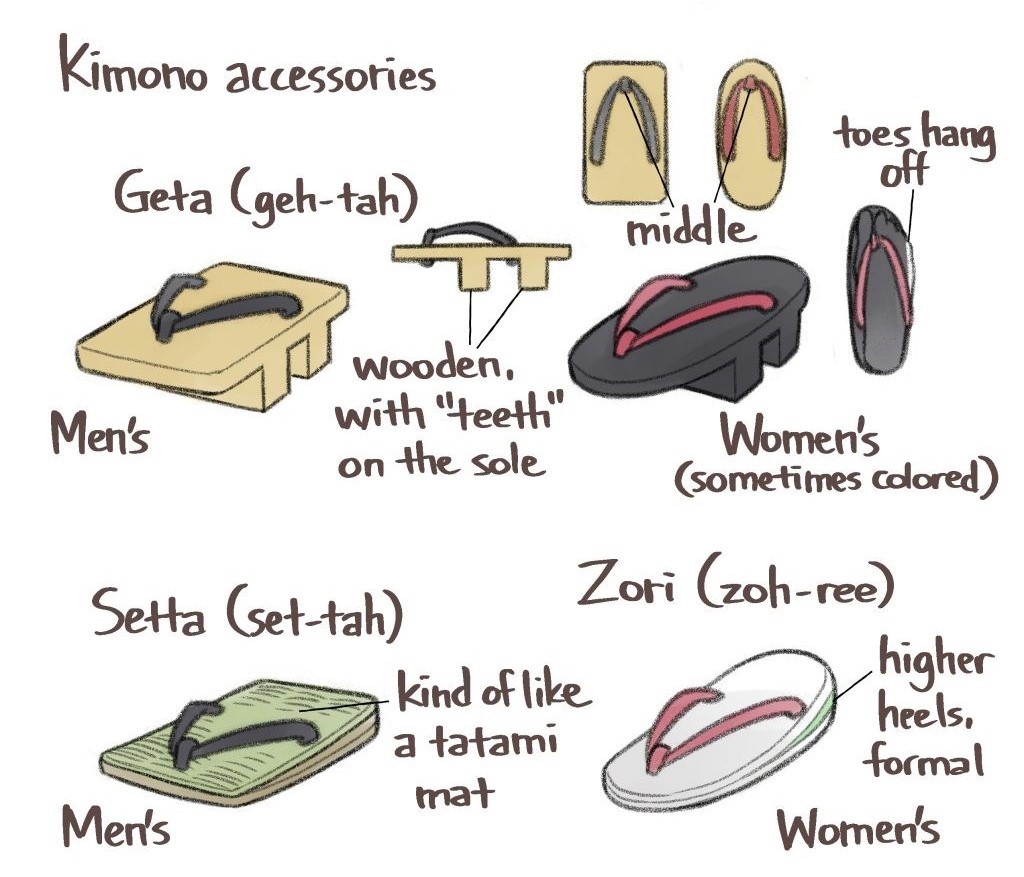 Kimono accessories
Geta (geh-tah)
middle
toes hang
off
wooden,
with "teeth"
on the sole
Men's
Women's
(sometimes colored)
Setta (set-tah)
kind of like
a tatami
mat
Men's
Zori (zoh-ree)
higher
heels,
formal
Women's